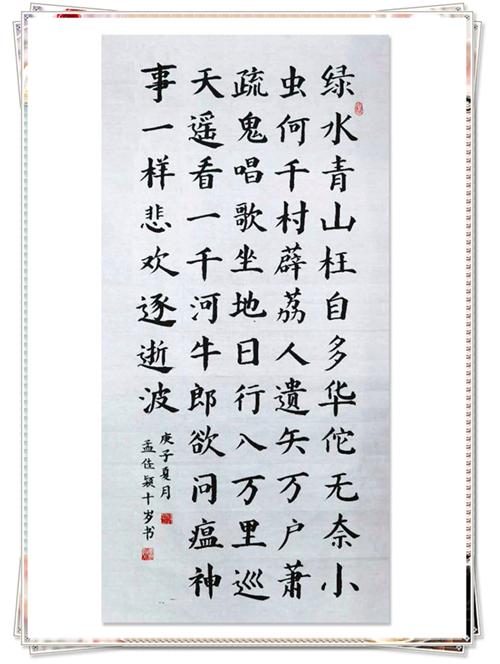 绿水青山枉自多华佗无奈小
虫何千村薜荔人遗矢万户萧
疏鬼唱歌坐地日行八万里巡
天遥看一千河牛郎欲问瘟神
事一样悲欢逐逝波
庚子夏月
孟佐颖十岁书